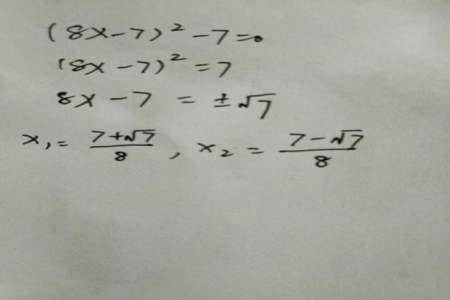 (8x-7)²-7=0
(8x-7)²=7
8x-7=±√7
x₁=(7+√7)/8, x₂=(7-√7)/8